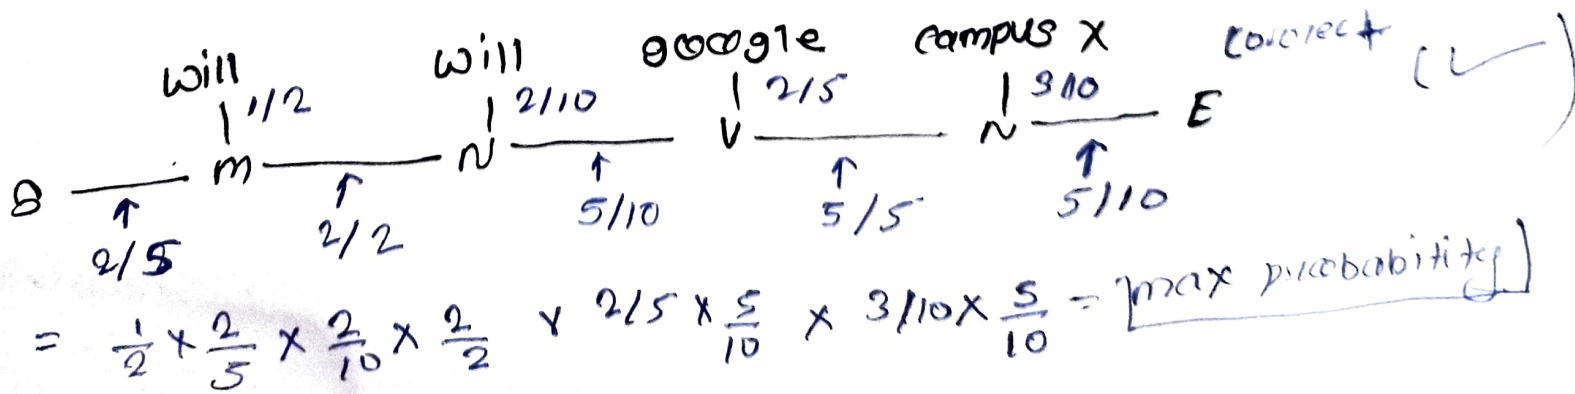 will will google campus X correct (✓)
1/2 2/10 2/5 3/10
S M N V N E
↑ ↑ ↑ ↑ ↑
2/5 2/2 5/10 5/5 5/10
= 1/2 × 2/5 × 2/10 × 2/2 × 2/5 × 5/10 × 3/10 × 5/10 = [max probabitity]